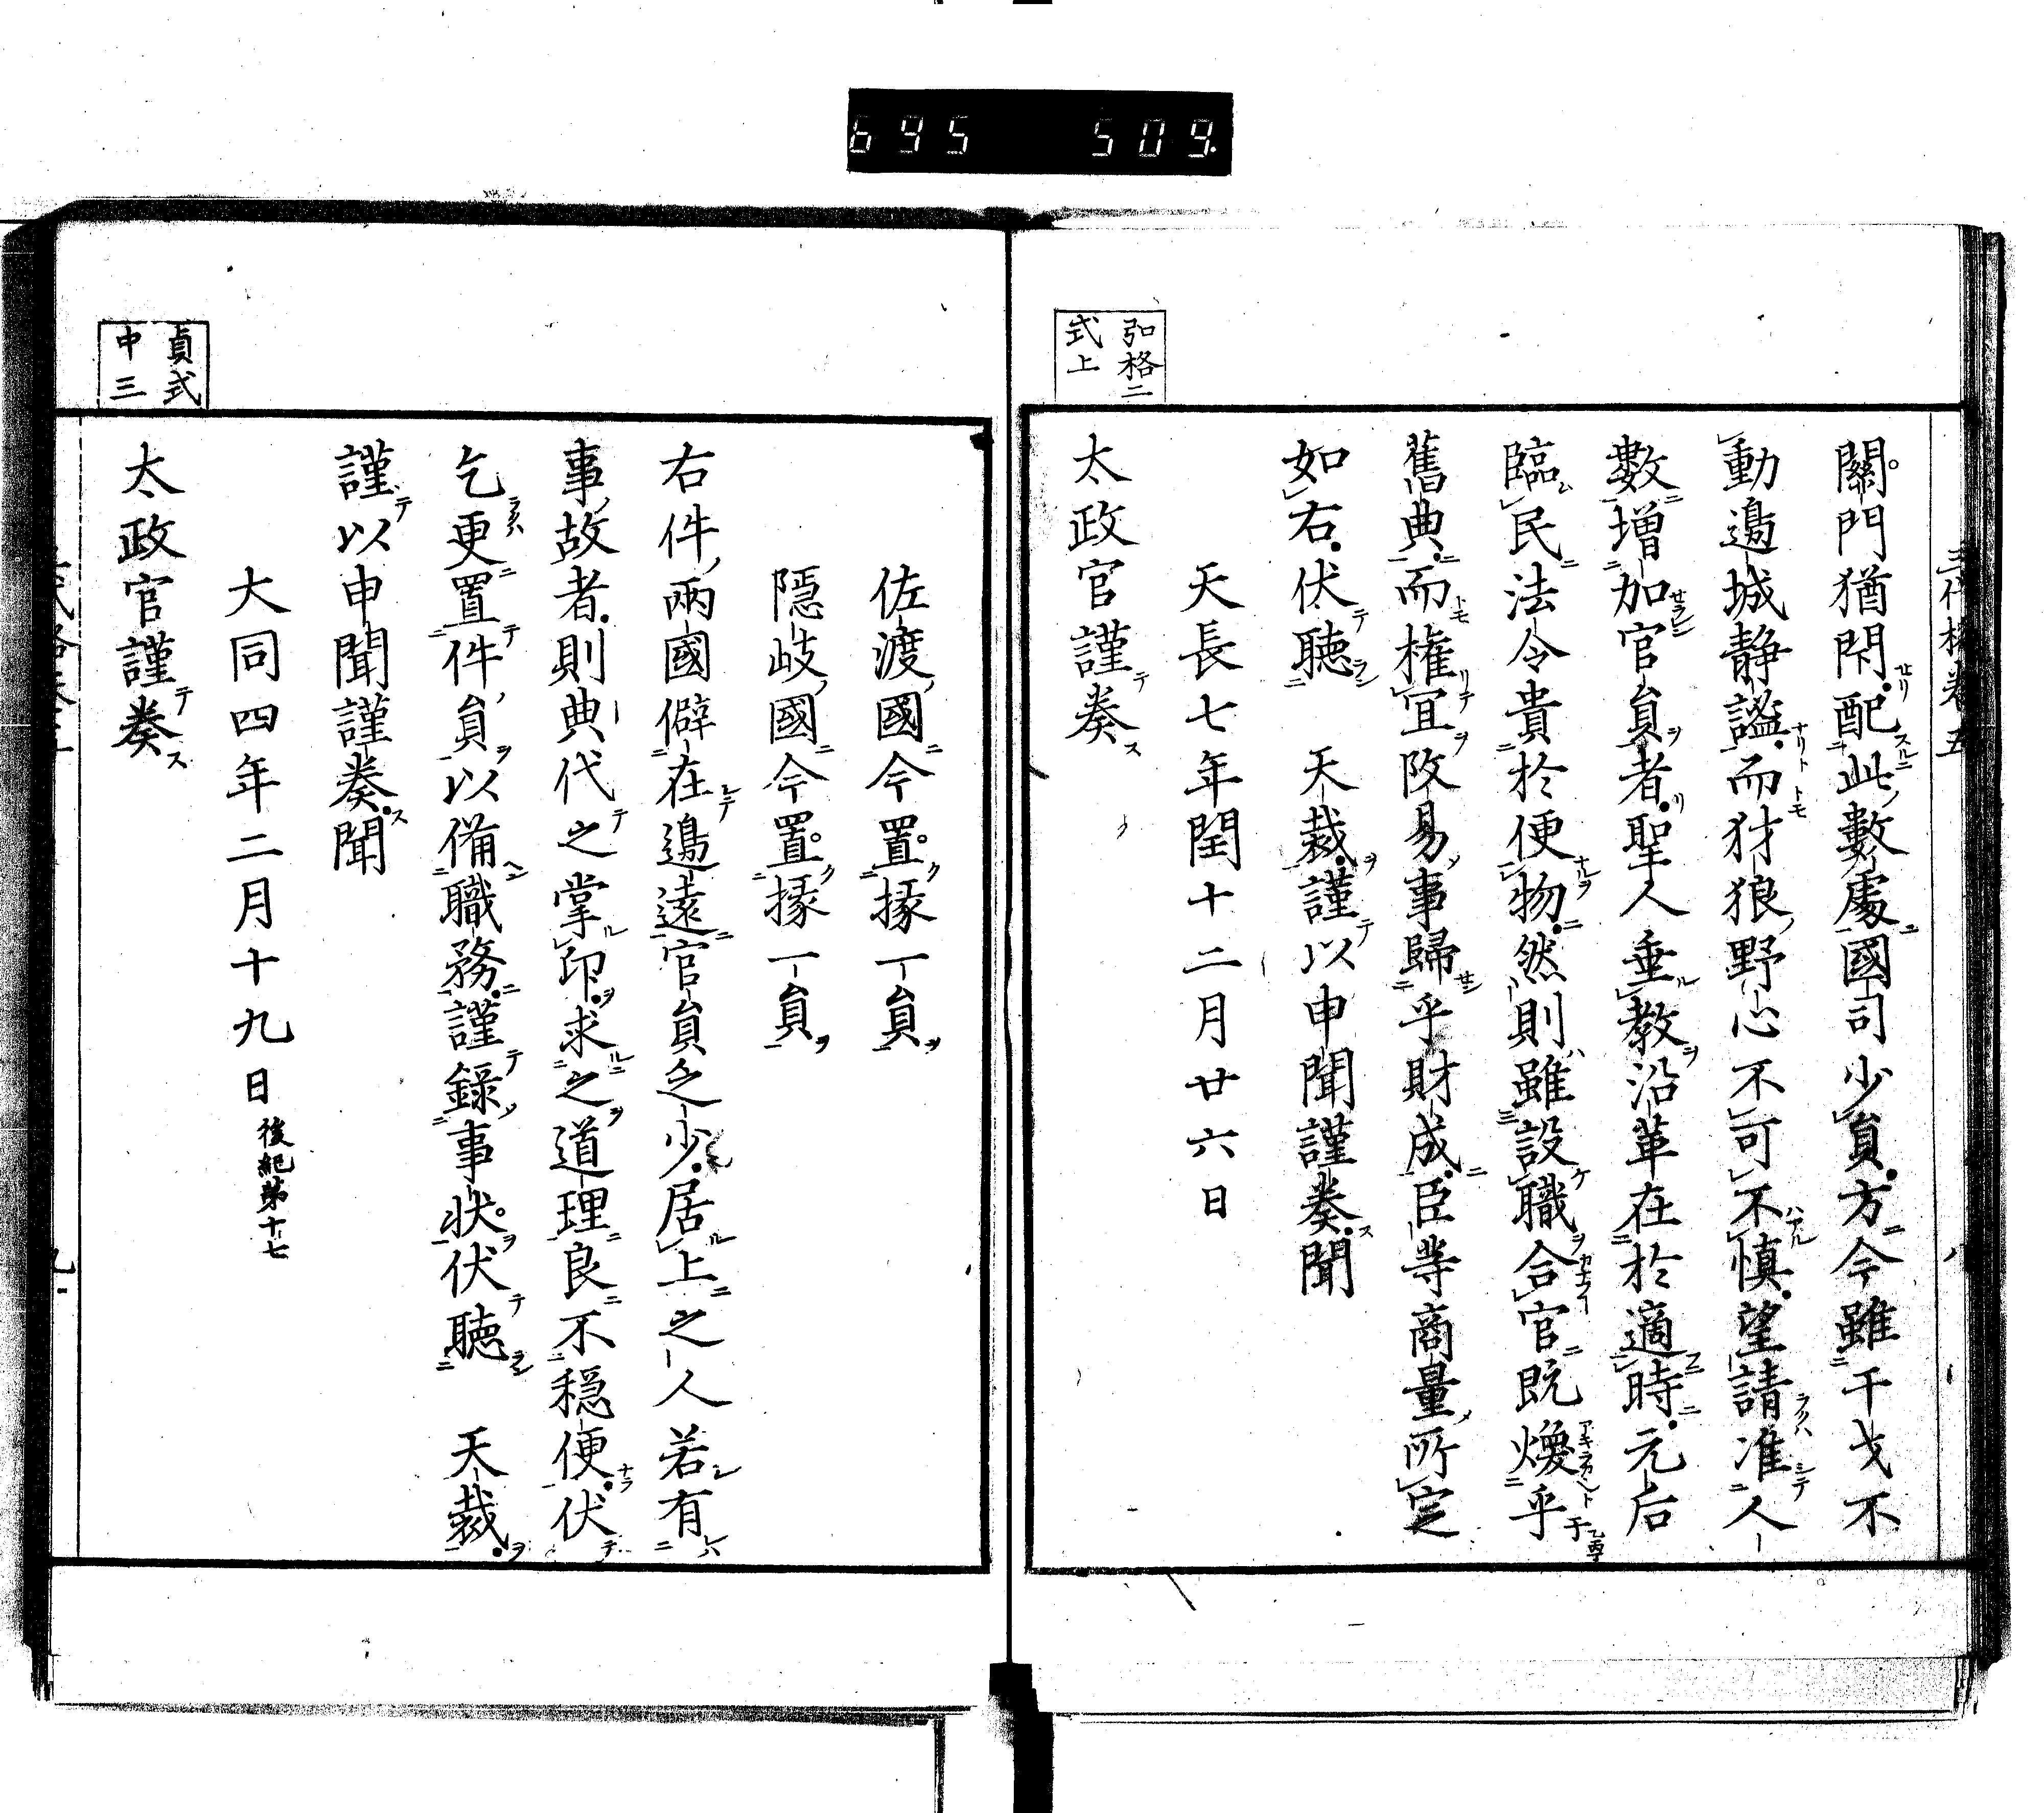 695 509
弘格二
式上
關門猶閇配此數處國司少員方今雖干戈不
動邊城靜謐而犲狼野心不可不慎望請准人
數增加官員者聖人垂教沿革在於適時元后
臨民法令貴於便物然則雖設職合官既煥乎
舊典而權宜改易事歸乎財成臣等商量所定
如右伏聽　天裁謹以申聞謹奏聞
天長七年閏十二月廿六日
太政官謹奏
佐渡國今置掾一員
隱岐國今置掾一員
右件兩國僻在邊遠官員乏少居上之人若有
事故者則典代之掌印求之道理良不穩便伏
乞更置件員以備職務謹錄事狀伏聽　天裁
謹以申聞謹奏聞
大同四年二月十九日後紀第十七
貞式
中三
太政官謹奏